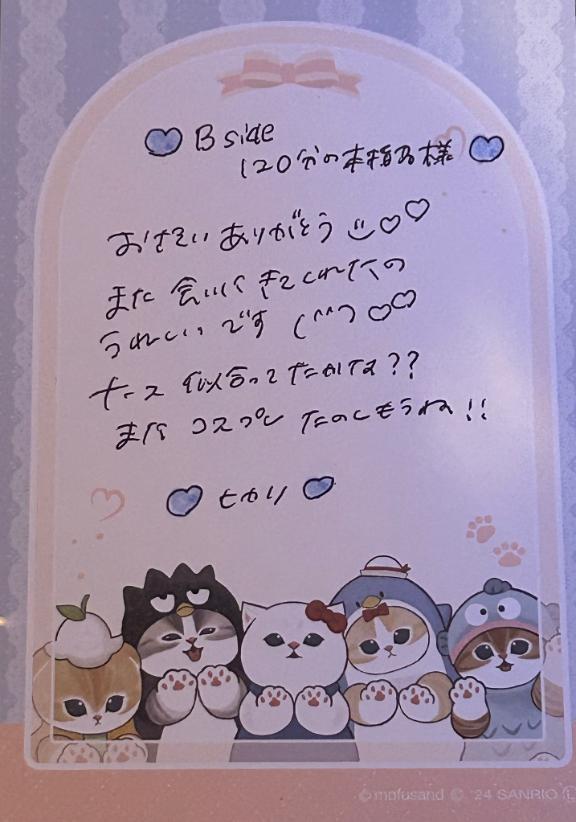 B side
120分の本指名様
おさそい ありがとう
また 会いに きてくれたの
うれしい です (^^)
ナース 似合ってたかな??
また コスプレ たのしもうね!!
ヒカリ
© mofusand © '24 SANRIO